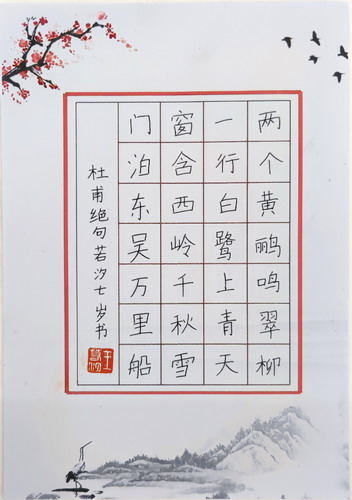 两个黄鹂鸣翠柳
一行白鹭上青天
窗含西岭千秋雪
门泊东吴万里船
杜甫绝句若汐七岁书